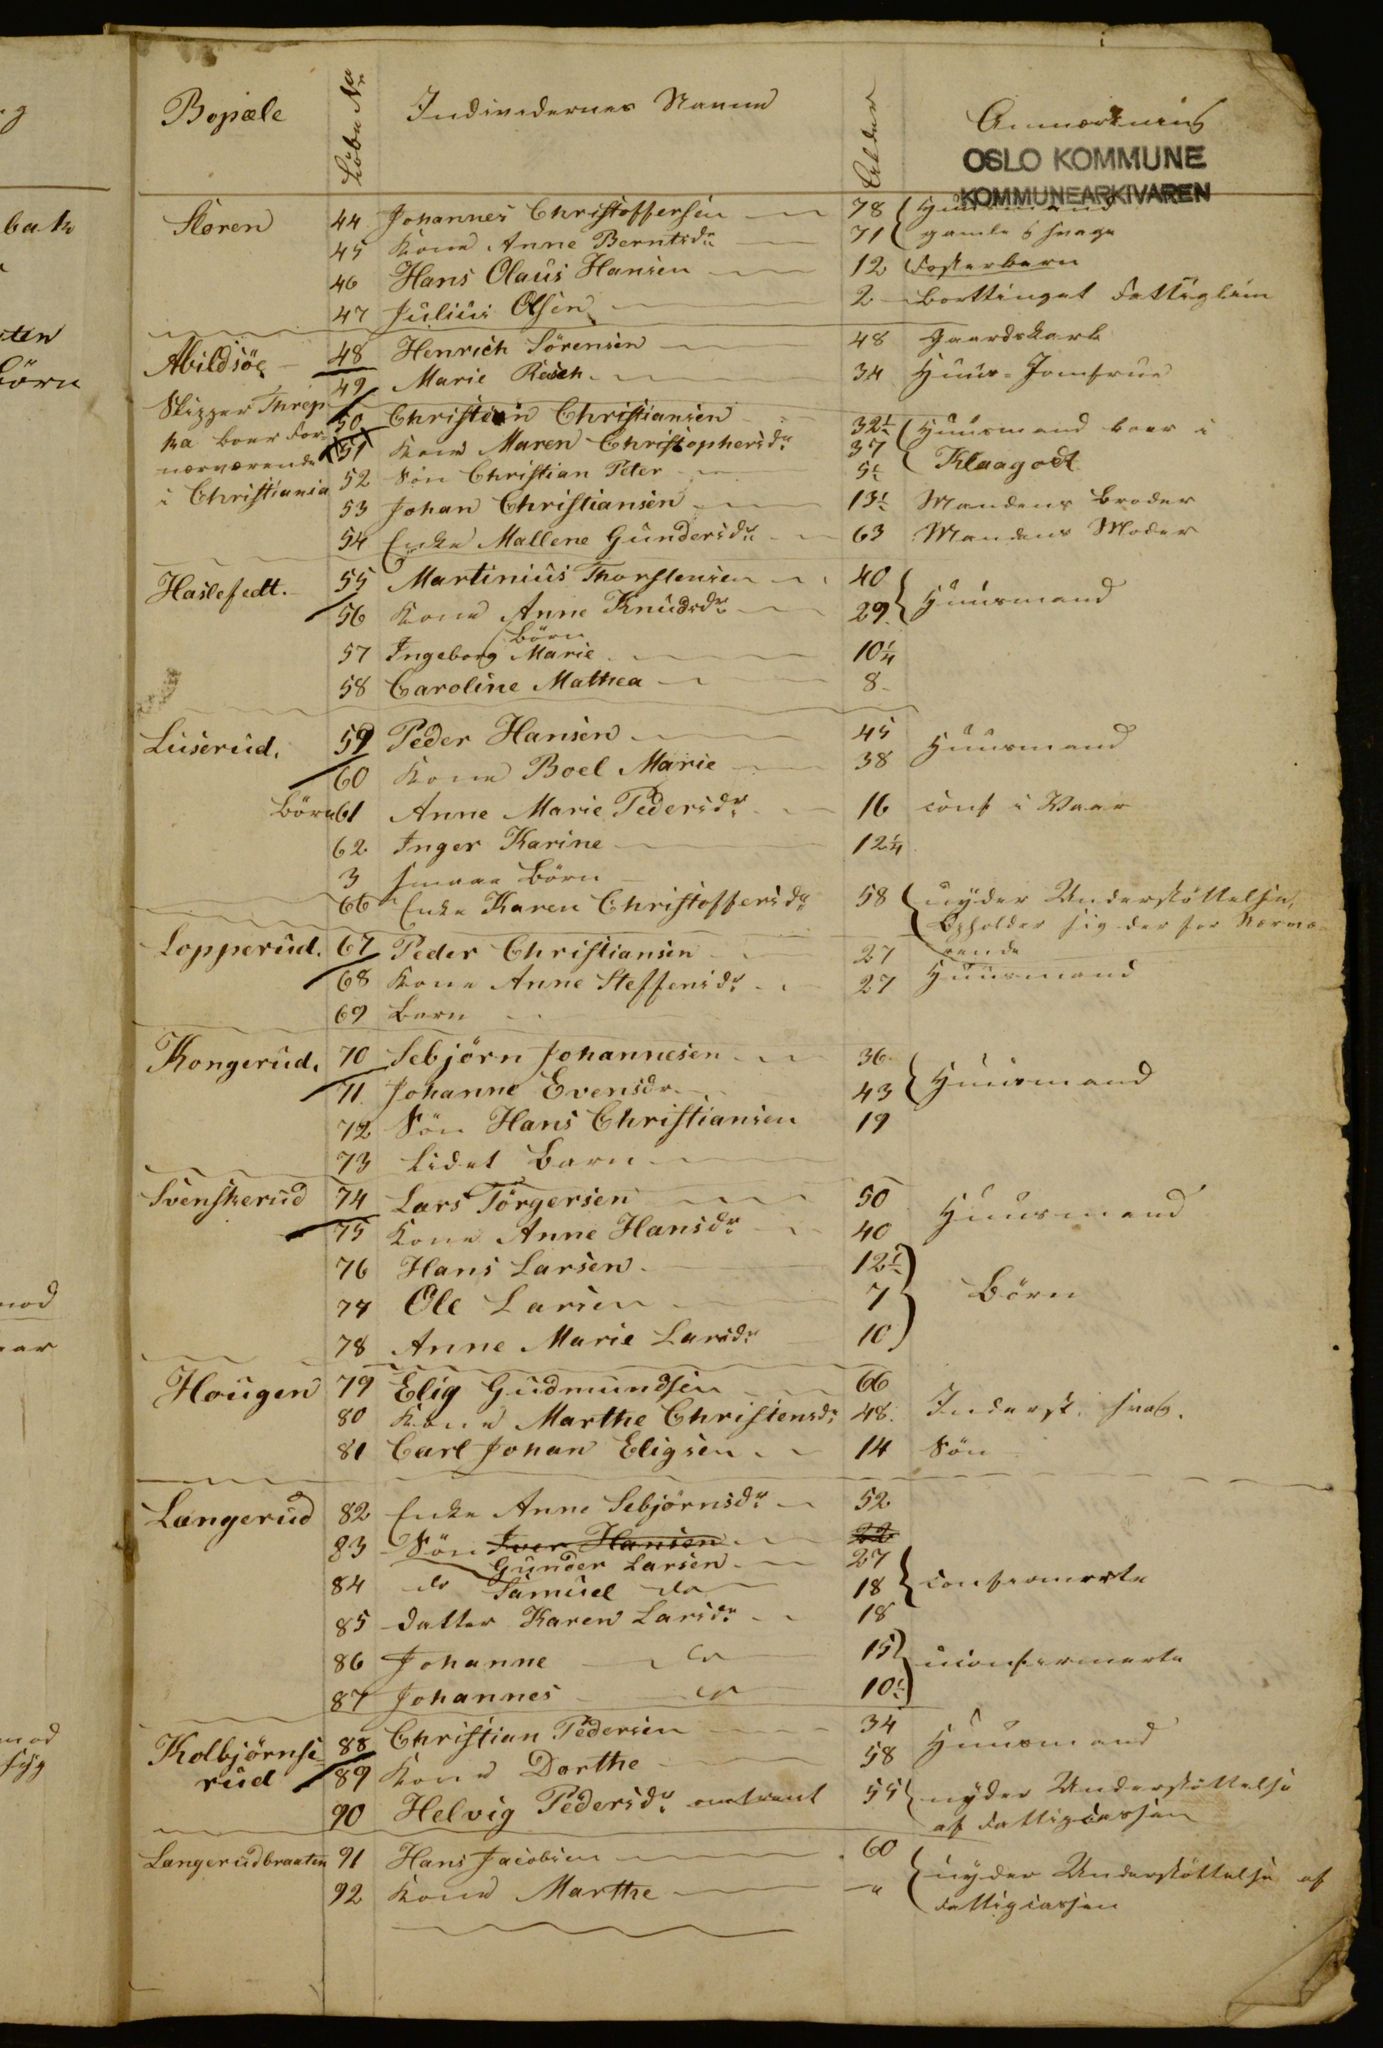 Bopæle Löbe No Individernes Navne Alder Anmærkning
OSLO KOMMUNE
KOMMUNEARKIVAREN
Støren 44 Johannes Christoffersen 78 Huusmand
45 Kone Anne Berntsdr 71 gamle & svage
46 Hans Olaus Hansen 12 Fosterbarn
47 Julius Olsen 2 Borttinget Fattiglem
Abildsöe 48 Henrich Sörensen 48 Gaardskarl
49 Marie Rasch 34 Huus-Jomfrue
Skipper Threp-
ka boer for
nærværende
i Christiania
50 Christian Christiansen 32½ Huusmand boer i
51 Kone Maren Christophersdr 37 Klaagodt
52 Sön Christian Peter 5½
53 Johan Christiansen 13½ Mandens Broder
54 Enke Mallene Gundersdr 63 Mandens Moder
Haslefedt. 55 Martinius Thorstensen 40 Huusmand
56 Kone Anne Knudsdr 29
Börn
57 Ingeborg Marie 10¼
58 Caroline Mathea 8
Luserud. 59 Peder Hansen 45 Huusmand
60 Kone Boel Marie 38
Börn 61 Anne Marie Pedersdr 16 conf i Vaar
62 Inger Karine 12¼
3 smaae Börn
66 Enke Karen Christoffersdr 58 nyder Understöttelse,
Opholder sig der for Nærvæ-
rende
Lopperud. 67 Peder Christiansen 27
68 Kone Anne Steffensdr 27 Huusmand
69 Barn
Kongerud. 70 Sebjörn Johannesen 36 Huusmand
71 Johanne Evensdr 43
72 Sön Hans Christiansen 19
73 lidet Barn
Svenskerud 74 Lars Törgersen 50 Huusmand
75 Kone Anne Hansdr 40
76 Hans Larsen 12½
77 Ole Larsen 7 Börn
78 Anne Marie Larsdr 10
Hougen 79 Elig Gudmundsen 66
80 Kone Marthe Christensdr 48 Inderst. svag.
81 Carl Johan Eligsen 14 Sön
Langerud 82 Enke Anne Sebjörnsdr 52
83 Sön Iver Hansen 22
Gunder Larsen 27
84 do Samuel do 18 confirmerte
85 Datter Karen Larsdr 18
86 Johanne do 15 uconfirmerte
87 Johannes do 10½
Kolbjörnse-
rud
88 Christian Pedersen 34 Huusmand
89 Kone Dorthe 58
90 Helvig Pedersdr omtrent 55 nyder Understöttelse
af Fattigcassen
Langerudbraaten 91 Hans Jacobsen 60
92 Kone Marthe " nyder Understöttelse af
Fattigcassen